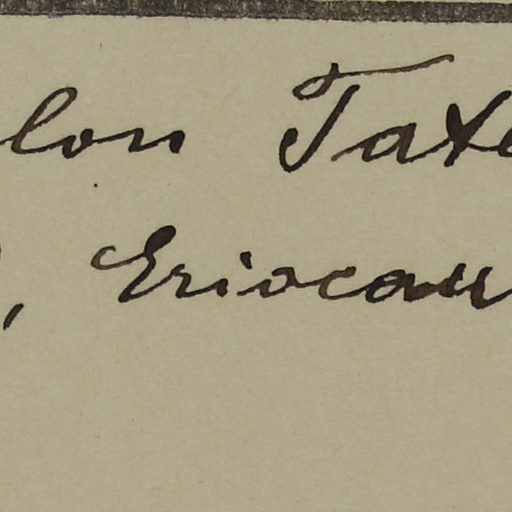 lon Tate
, Eriocau